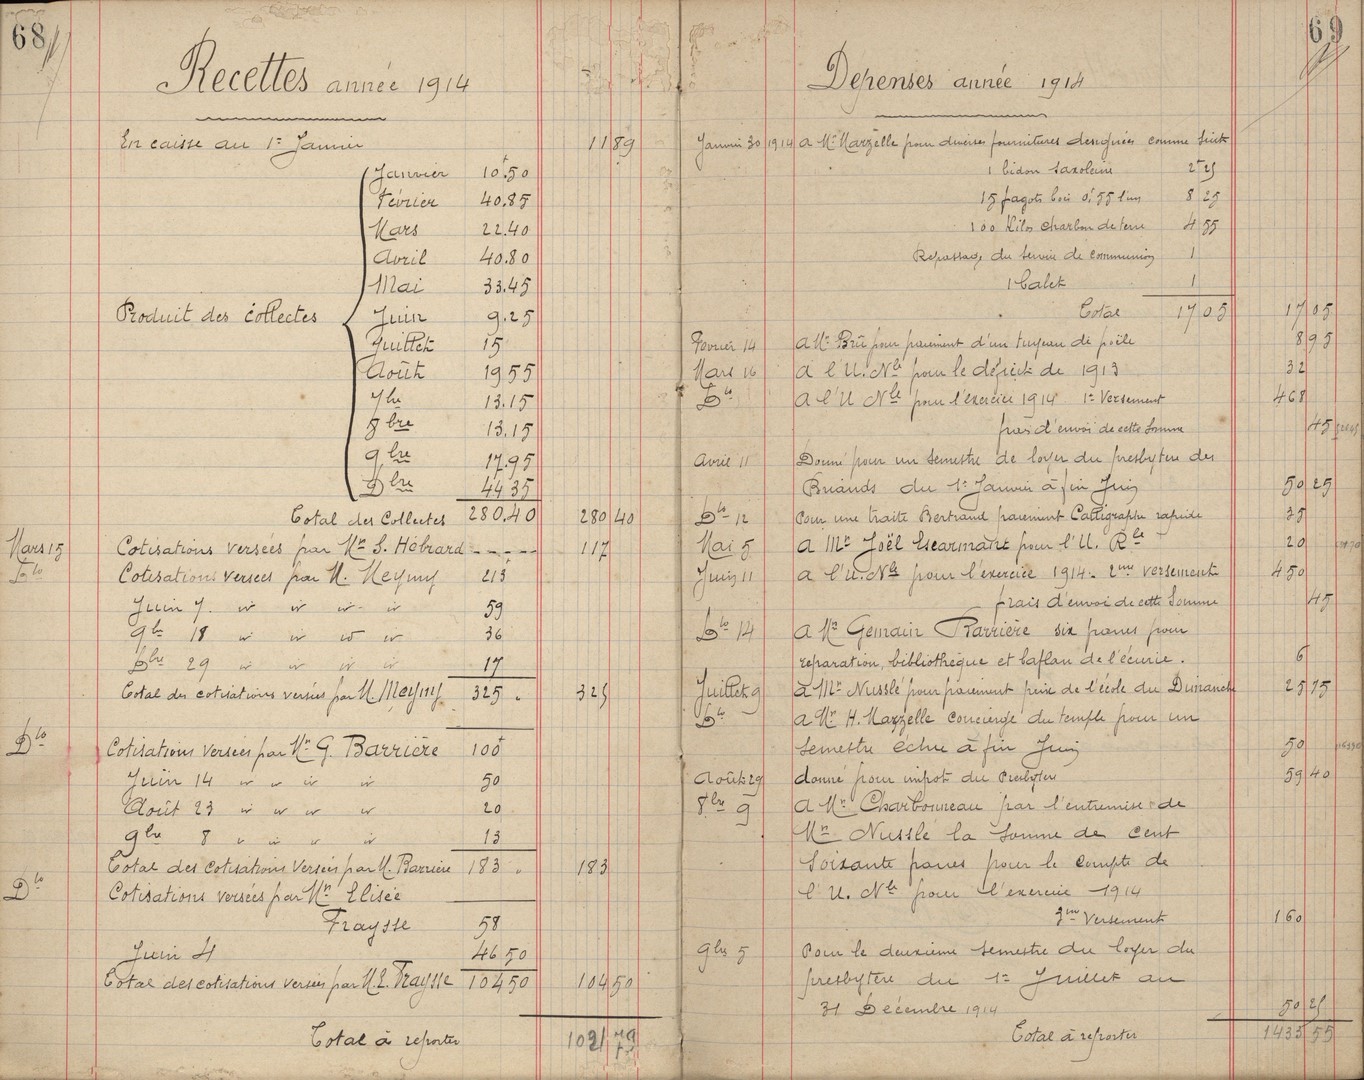 68
Recettes année 1914
En caisse au 1er Janvier 11 89
Janvier 10f.50
Février 40.85
Mars 22.40
Avril 40.80
Mai 33.45
Produit des Collectes Juin 9.25
Juillet 15
Août 19 55
7bre 13.15
8bre 13.15
9bre 17.95
Dbre 44 35
Total des Collectes 280.40 280 40
Mars 15 Cotisations versées par Mr S. Hébrard - - - - - 117
Dto Cotisations versées par M. Meymy 213
Juin 7. " " " " 59
9bre 18 " " " " 36
Dbre 29 " " " " 17
Total des cotisations versées par M. Meymy 325 . 325
Dto Cotisations versées par Mr G. Barrière 100f
Juin 14 " " " " 50
Août 23 " " " " 20
9bre 8 " " " " 13
Total des cotisations versées par M. Barrière 183 . 183
Dto Cotisations versées par Mr Elisée
Fraysse 58
Juin 4 46 50
Total des cotisations versées par M. E. Fraysse 104 50 104 50
Total à reporter 1021 79
69
Dépenses année 1914
Janvier 30 1914 a Mr Mazelle pour diverses fournitures designées comme suit
1 bidon saxoleine 2f 25
15 fagots bois 0f.55 l'un 8 25
100 Kilos charbon de terre 4 55
Repassage du service de communion 1
1 balet 1
Total 17 05 17 05
Fevrier 14 a Mr Brû pour paiement d'un tuyeau de poêle 8 95
Mars 16 a l'U. Nle pour le déficit de 1913 32
Dto a l'U Nle pour l'exercice 1914 1er Versement 468
frais d'envoi de cette Somme 45
Avril 11 Donné pour un semestre de loyer du presbytere des
Briands du 1er Janvier à fin Juin 50 25
Dto 12 Pour une traite Bertrand paiement Calligraphe rapide 35
Mai 5 a Mr Joël Escarmant pour l'U. Rle 20
Juin 11 a l'U. Nle pour l'exercice 1914. 2me versement 450
frais d'envoi de cette Somme 45
Dto 14 a Mr Germain Barrière six francs pour
reparation, bibliothèque et baflan de l'écurie. 6
Juillet 9 à Mr Nusslé pour paiement prix de l'école du Dimanche 25 75
Dto a Mr H. Mazzelle concierge du temple pour un
semestre échu à fin Juin 50
Août 29 donné pour impot du Presbytere 59 40
8bre 9 a Mr Charbonneau par l'entremise de
Mr Nusslé la Somme de cent
Soixante francs pour le compte de
l'U. Nle pour l'exercice 1914
3me Versement 160
9bre 5 Pour le deuxième semestre du loyer du
presbytère du 1er Juillet au
31 Décembre 1914 50 25
Total à reporter 1435 55